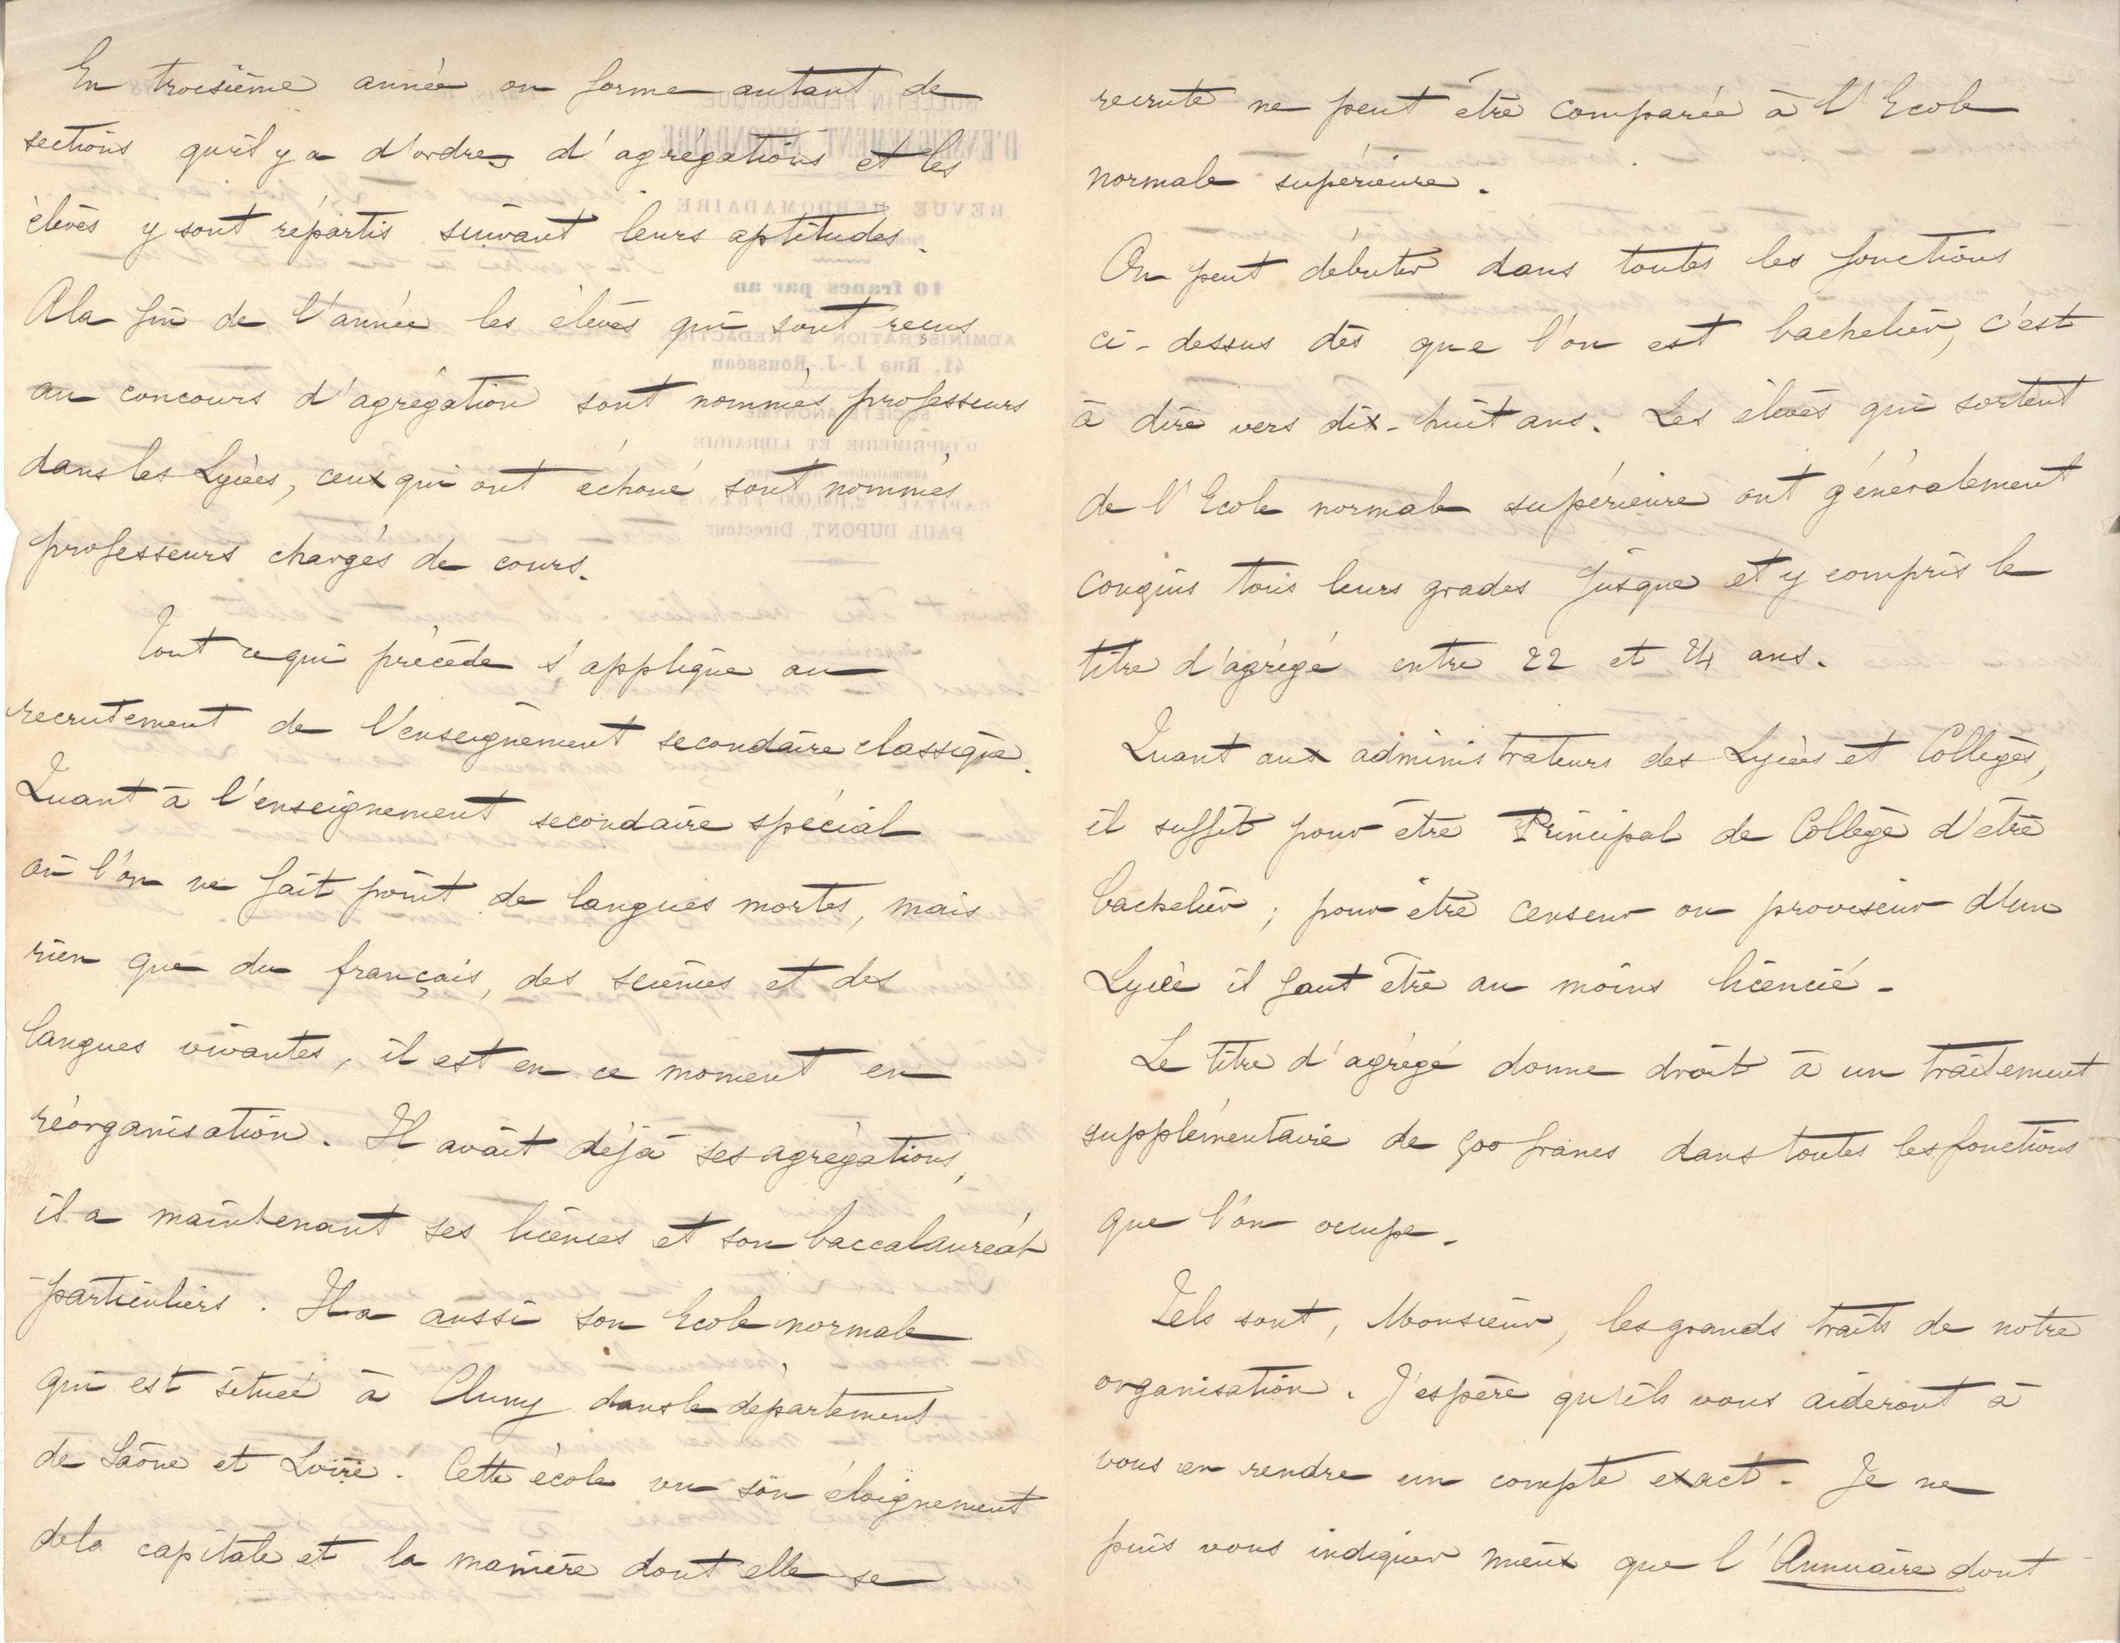 En troisième année on forme autant de
sections qu'il y a d'ordres d'agrégations et les
élèves y sont répartis suivant leurs aptitudes.
A la fin de l'année les élèves qui sont reçus
au concours d'agrégation sont nommés professeurs
dans les Lycées, ceux qui ont échoué sont nommés
professeurs chargés de cours.
Tout ce qui précède s'applique au
recrutement de l'enseignement secondaire classique.
Quant à l'enseignement secondaire spécial
où l'on ne fait point de langues mortes, mais
rien que du français, des sciences et des
langues vivantes, il est en ce moment en
réorganisation. Il avait déjà ses agrégations,
il a maintenant ses licences et son baccalauréat
particuliers. Il a aussi son Ecole normale
qui est située à Cluny dans le département
de Saône et Loire. Cette école vu son éloignement
de la capitale et la manière dont elle se
recrute ne peut être comparée à l'Ecole
normale supérieure.
On peut débuter dans toutes les fonctions
ci-dessus dès que l'on est bachelier, c'est
à dire vers dix-huit ans. Les élèves qui sortent
de l'Ecole normale supérieure ont généralement
conquis tous leurs grades jusque et y compris le
titre d'agrégé entre 22 et 24 ans.
Quant aux administrateurs des Lycées et Collèges,
il suffit pour être Principal de Collège d'être
bachelier ; pour être censeur ou proviseur d'un
Lycée il faut être au moins licencié.
Le titre d'agrégé donne droit à un traitement
supplémentaire de 500 francs dans toutes les fonctions
que l'on occupe.
Tels sont, Monsieur, les grands traits de notre
organisation. J'espère qu'ils vous aideront à
vous en rendre un compte exact. Je ne
puis vous indiquer mieux que l'Annuaire dont